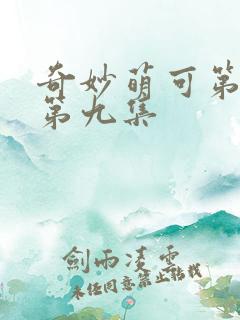 奇妙萌可第
第九集
劍雨凌雲
未经同意禁止转载